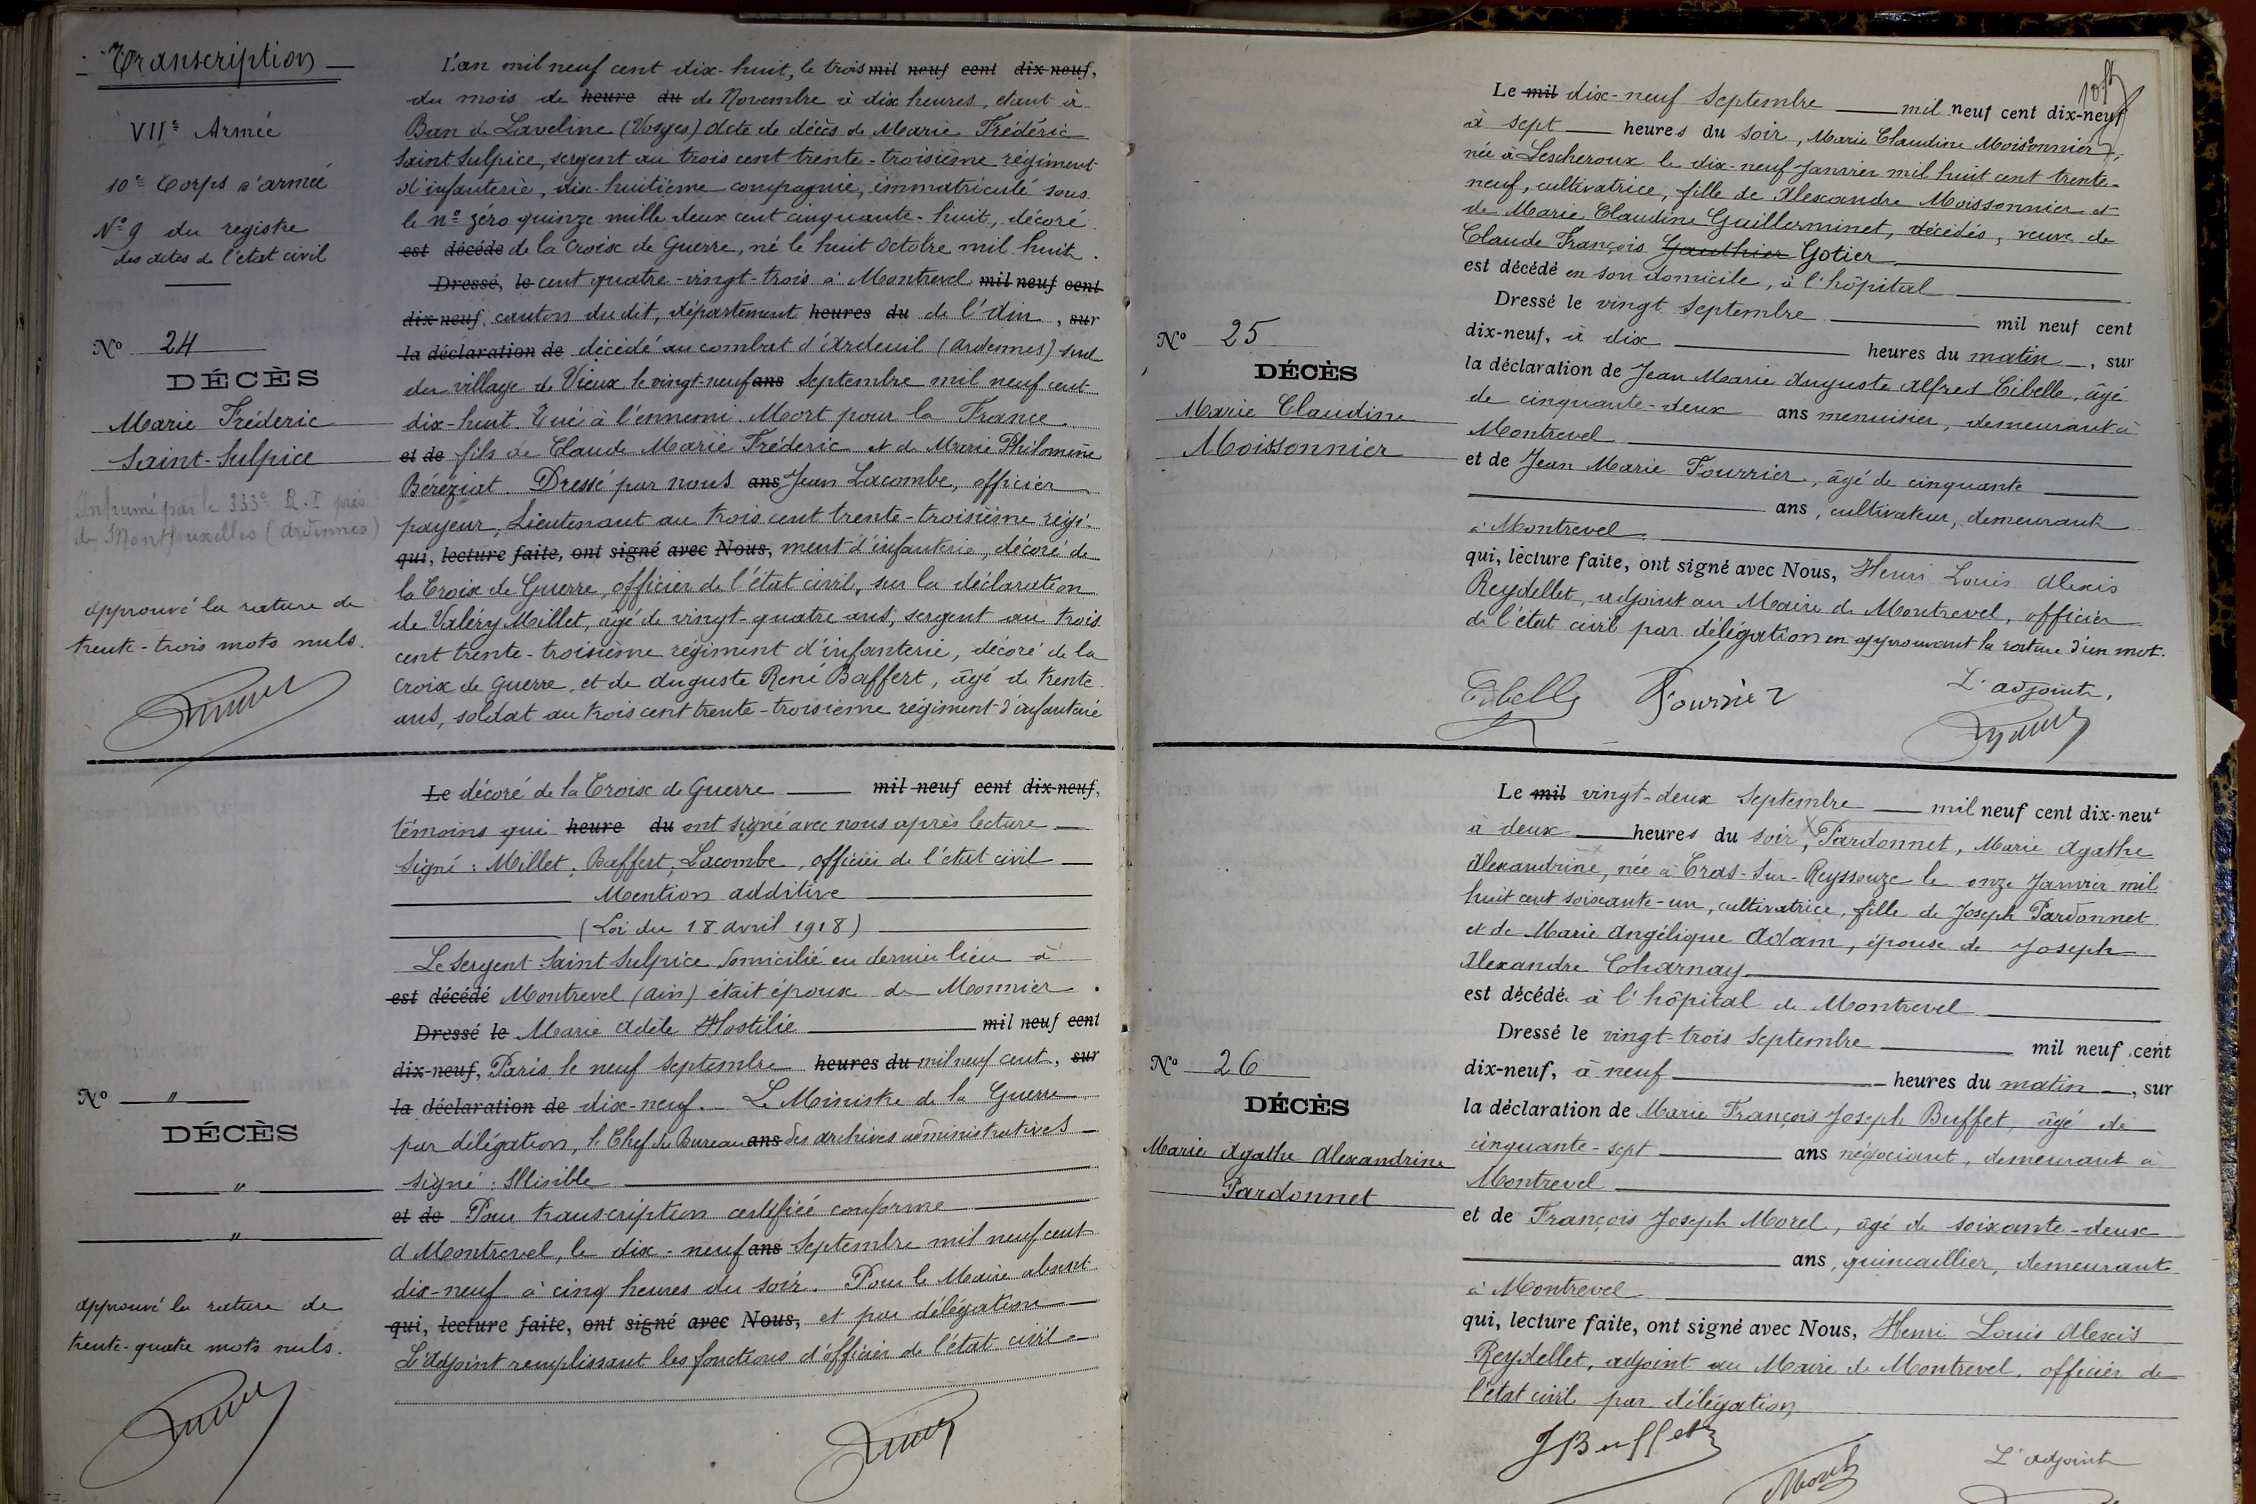 Transcription
VIIe Armée
10e Corps d'armée
No 9 du registre
des actes de l'état civil
No 24
DÉCÈS
Marie Fréderic
Saint-Sulpice
Inhumé par le 333e R.I près
de (Ardennes)
approuvé la rature de
trente-trois mots nuls.
L'an mil neuf cent dix-huit, le trois mil neuf cent dix-neuf,
du mois de heure du de Novembre à dix heures, étant à
Ban de Laveline (Vosges) Acte de décès de Marie Frédéric
Saint Sulpice, sergent au trois cent trente-troisième régiment
d'infanterie, dix-huitième compagnie, immatriculé sous
le no zéro quinze mille deux cent cinquante-huit, décoré
est décédé de la Croix de Guerre, né le huit Octobre mil huit.
Dressé, le cent quatre-vingt-trois à Montrevel mil neuf cent
dix-neuf, canton du dit, département heures du de l'Ain, sur
la déclaration de décédé au combat d'Ardeuil (Ardennes) sud
du village de Vieux le vingt-neuf ans Septembre mil neuf cent
dix-huit. Tué à l'ennemi. Mort pour la France.
et de fils de Claude Marie Fréderic et de Marie Philomène
Béréziat. Dressé par nous ans Jean Lacombe, officier
payeur, Lieutenant au trois cent trente-troisième régi-
qui, lecture faite, ont signé avec Nous, ment d'infanterie, décoré de
la Croix de Guerre, officier de l'état civil, sur la déclaration
de Valéry Millet, âgé de vingt-quatre ans, sergent au trois
cent trente-troisième régiment d'infanterie, décoré de la
Croix de Guerre, et de Auguste René Baffert, âgé de trente
ans, soldat au trois cent trente-troisième régiment d'infanterie
No "
DÉCÈS
"
"
approuvé la rature de
trente-quatre mots nuls.
Le décoré de la Croix de Guerre mil neuf cent dix-neuf,
témoins qui heure du ont signé avec nous après lecture
Signé : Millet, Baffert, Lacombe, officier de l'état civil
Mention additive
(Loi du 18 avril 1918)
Le Sergent Saint Sulpice domicilié en dernier lieu à
est décédé Montrevel (Ain) était époux de Monnier.
Dressé le Marie Adèle Hostilie mil neuf cent
dix-neuf, Paris le neuf Septembre heures du mil neuf cent, sur
la déclaration de dix-neuf. Le Ministre de la Guerre
par délégation, le Chef du Bureau ans des archives administratives
signé : Illisible
et de Pour transcription certifiée conforme
A Montrevel, le dix-neuf ans Septembre mil neuf cent
dix-neuf à cinq heures du soir. Pour le Maire absent
qui, lecture faite, ont signé avec Nous, et par délégation
L'Adjoint remplissant les fonctions d'officier de l'état civil
No 25
DÉCÈS
Marie Claudine
Moissonnier
Le mil dix-neuf Septembre mil neuf cent dix-neuf
à sept heures du soir, Marie Claudine Moissonnier,
née à Lescheroux le dix-neuf Janvier mil huit cent trente-
neuf, cultivatrice, fille de Alexandre Moissonnier et
de Marie Claudine Guillerminet, décédés, veuve de
Claude François Gauthier Gotier
est décédé en son domicile, à l'hôpital
Dressé le vingt Septembre mil neuf cent
dix-neuf, à dix heures du matin, sur
la déclaration de Jean Marie Auguste Alfred Cibelle, âgé
de cinquante-deux ans menuisier, demeurant à
Montrevel
et de Jean Marie Fourrier, âgé de cinquante
ans, cultivateur, demeurant
à Montrevel
qui, lecture faite, ont signé avec Nous, Henri Louis Alexis
Reydellet, adjoint au Maire de Montrevel, officier
de l'état civil par délégation en approuvant la rature d'un mot.
Cibelle Fourrier L'adjoint,
No 26
DÉCÈS
Marie Agathe Alexandrine
Pardonnet
Le mil vingt-deux Septembre mil neuf cent dix-neuf
à deux heures du soir, Pardonnet, Marie Agathe
Alexandrine, née à Cras-Sur-Reyssouze le onze Janvier mil
huit cent soixante-un, cultivatrice, fille de Joseph Pardonnet
et de Marie Angélique Adam, épouse de Joseph
Alexandre Charnay
est décédé à l'hôpital de Montrevel
Dressé le vingt-trois Septembre mil neuf cent
dix-neuf, à neuf heures du matin, sur
la déclaration de Marie François Joseph Buffet, âgé de
cinquante-sept ans négociant, demeurant à
Montrevel
et de François Joseph Morel, âgé de soixante-deux
ans, quincaillier, demeurant
à Montrevel
qui, lecture faite, ont signé avec Nous, Henri Louis Alexis
Reydellet, adjoint au Maire de Montrevel, officier de
l'état civil par délégation
JBuffet Morel L'adjoint